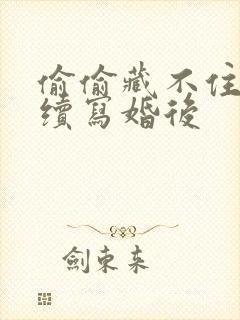 偷偷藏不住
續寫婚後
劍束来